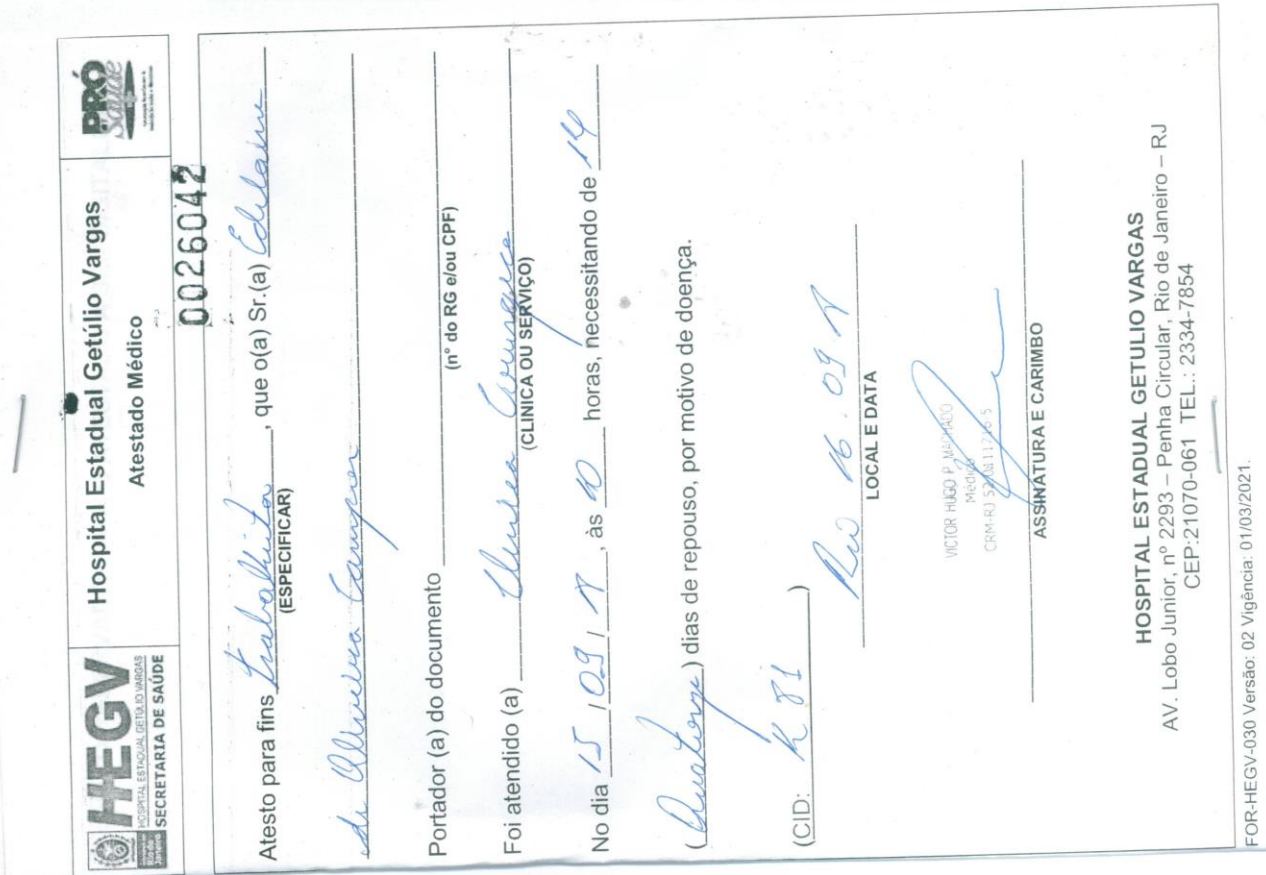 HEGV
HOSPITAL ESTADUAL GETÚLIO VARGAS
SECRETARIA DE SAÚDE
Rio de Janeiro
Hospital Estadual Getúlio Vargas
Atestado Médico
PRÓ
Saúde
0026042
Atesto para fins Trabalhista, que o(a) Sr.(a) Edelaine
(ESPECIFICAR)
de Oliveira
Portador (a) do documento
(nº do RG e/ou CPF)
Foi atendido (a)
(CLINICA OU SERVIÇO)
No dia 15/09/, às 10 horas, necessitando de 14
(Quatorze) dias de repouso, por motivo de doença.
(CID: K 81)
Rio 16.09
LOCAL E DATA
VICTOR HUGO P. MACHADO
Médico
CRM-RJ
ASSINATURA E CARIMBO
HOSPITAL ESTADUAL GETULIO VARGAS
AV. Lobo Junior, nº 2293 – Penha Circular, Rio de Janeiro – RJ
CEP:21070-061 TEL.: 2334-7854
FOR-HEGV-030 Versão: 02 Vigência: 01/03/2021.